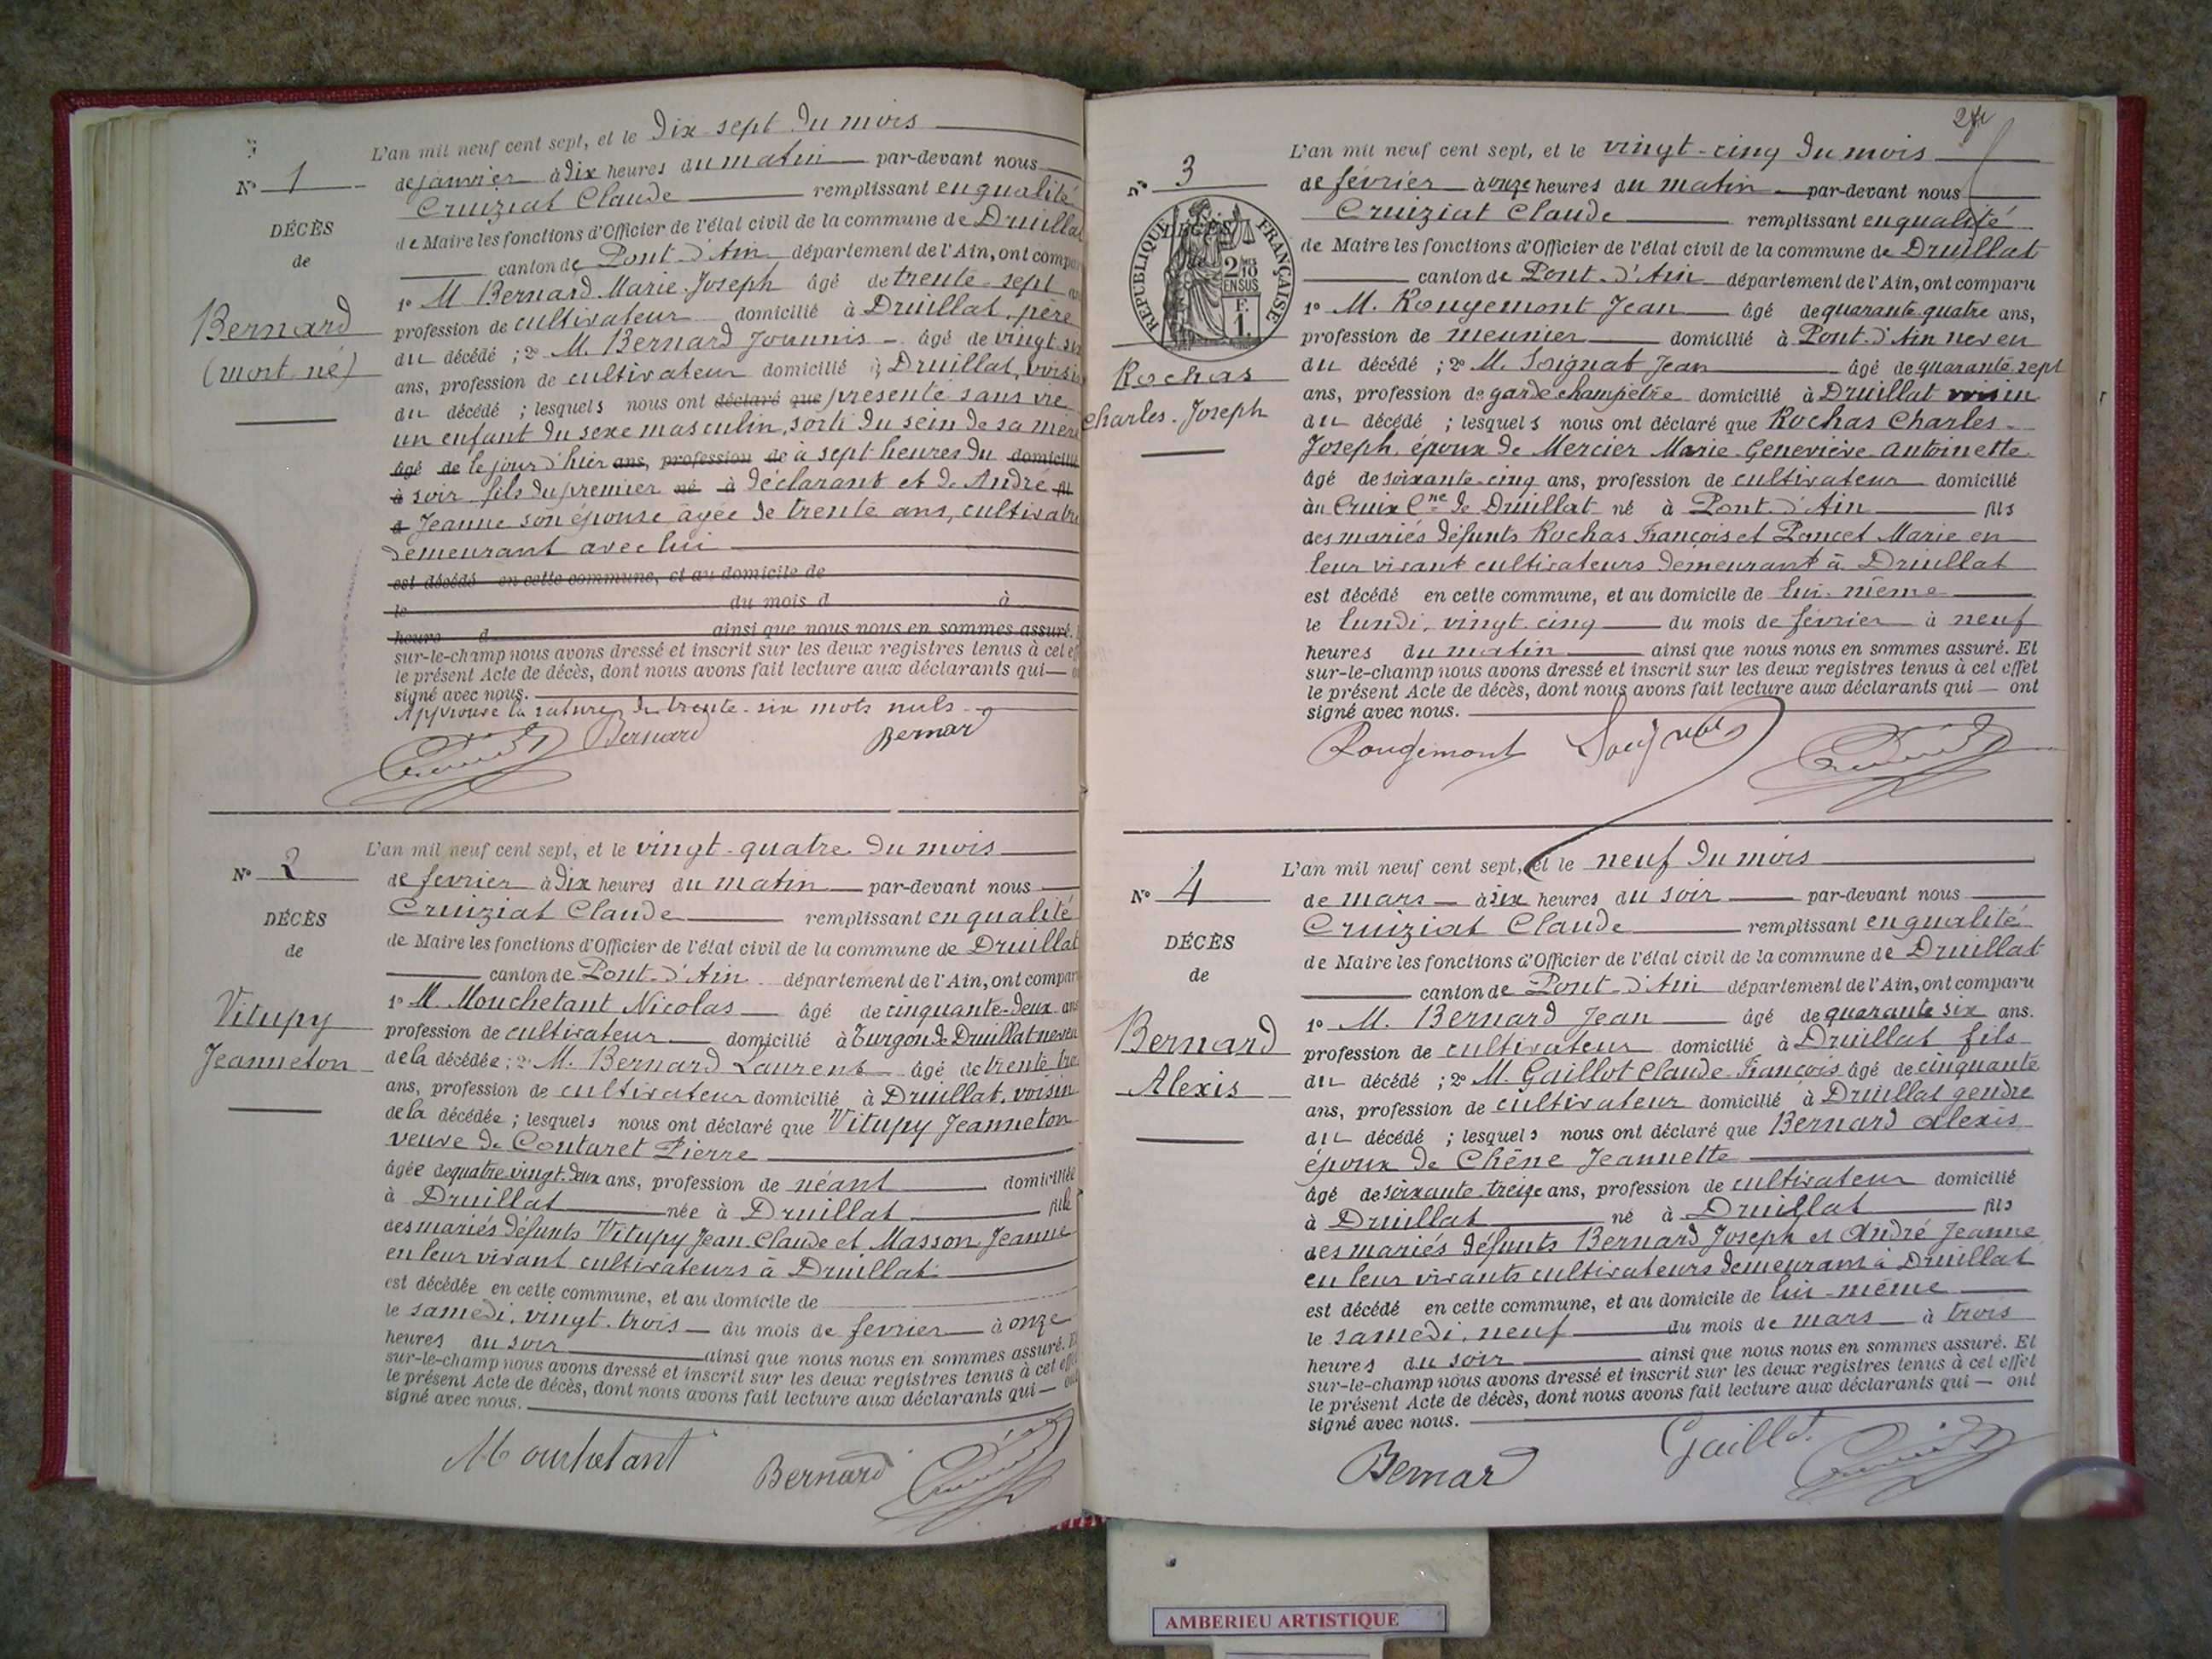 N° 1
DÉCÈS
de
Bernard
(mort né)
L'an mil neuf cent sept, et le dix-sept du mois
de janvier à dix heures du matin par-devant nous
Cruiziat Claude remplissant en qualité
de Maire les fonctions d'Officier de l'état civil de la commune de Druillat
canton de Pont-d'Ain département de l'Ain, ont compa
1° M. Bernard Marie-Joseph âgé de trente-sept
profession de cultivateur domicilié à Druillat, père
du décédé ; 2° M. Bernard Joannis - âgé de vingt-six
ans, profession de cultivateur domicilié à Druillat, voisin
du décédé ; lesquels nous ont déclaré que présenté sans vie
un enfant du sexe masculin, sorti du sein de sa mère
âgé de le jour d'hier ans, profession de à sept heures du domicilié
à soir fils du premier né à déclarant et de André
à Jeanne son épouse âgée de trente ans, cultivatri
demeurant avec lui
est décédé en cette commune, et au domicile de
le du mois d à
heure d ainsi que nous nous en sommes assuré.
sur-le-champ nous avons dressé et inscrit sur les deux registres tenus à cet ef
le présent Acte de décès, dont nous avons fait lecture aux déclarants qui — o
signé avec nous.
Approuvé la rature de trente-six mots nuls
Bernard Bernard
N° 2
DÉCÈS
de
Vitupy
Jeanneton
L'an mil neuf cent sept, et le vingt-quatre du mois
de février à dix heures du matin par-devant nous
Cruiziat Claude remplissant en qualité
de Maire les fonctions d'Officier de l'état civil de la commune de Druillat
canton de Pont-d'Ain département de l'Ain, ont compar
1° M. Mouchetant Nicolas âgé de cinquante-deux ans
profession de cultivateur domicilié à Turgon de Druillat neveu
de la décédée ; 2° M. Bernard Laurent âgé de trente tre
ans, profession de cultivateur domicilié à Druillat, voisin
de la décédée ; lesquels nous ont déclaré que Vitupy Jeanneton
veuve de Contaret Pierre
âgée de quatre vingt-deux ans, profession de néant domiciliée
à Druillat née à Druillat fille
des mariés défunts Vitupy Jean-Claude et Masson Jeanne
en leur vivant cultivateurs à Druillat
est décédée en cette commune, et au domicile de
le samedi, vingt-trois du mois de février à onze
heures du soir ainsi que nous nous en sommes assuré. E
sur-le-champ nous avons dressé et inscrit sur les deux registres tenus à cet effe
le présent Acte de décès, dont nous avons fait lecture aux déclarants qui — ont
signé avec nous.
Mourhetant Bernard
2
N° 3
DÉCÈS
RÉPUBLIQUE FRANÇAISE
2/10 EN SUS
F. 1.
Rochas
Charles-Joseph
L'an mil neuf cent sept, et le vingt-cinq du mois
de février à onze heures du matin par-devant nous
Cruiziat Claude remplissant en qualité
de Maire les fonctions d'Officier de l'état civil de la commune de Druillat
canton de Pont-d'Ain département de l'Ain, ont comparu
1° M. Rougemont Jean âgé de quarante quatre ans,
profession de meunier domicilié à Pont-d'Ain neveu
du décédé ; 2° M. Soignat Jean âgé de quarante sept
ans, profession de garde champêtre domicilié à Druillat voisin
du décédé ; lesquels nous ont déclaré que Rochas Charles-
Joseph, époux de Mercier Marie Geneviève Antoinette
âgé de soixante-cinq ans, profession de cultivateur domicilié
au Cruix Cne de Druillat né à Pont-d'Ain fils
des mariés défunts Rochas François et Poncet Marie en
leur vivant cultivateurs demeurant à Druillat
est décédé en cette commune, et au domicile de lui-même
le lundi, vingt-cinq du mois de février à neuf
heures du matin ainsi que nous nous en sommes assuré. Et
sur-le-champ nous avons dressé et inscrit sur les deux registres tenus à cet effet
le présent Acte de décès, dont nous avons fait lecture aux déclarants qui — ont
signé avec nous.
Rougemont Soignat
N° 4
DÉCÈS
de
Bernard
Alexis
L'an mil neuf cent sept, et le neuf du mois
de mars à six heures du soir par-devant nous
Cruiziat Claude remplissant en qualité
de Maire les fonctions d'Officier de l'état civil de la commune de Druillat
canton de Pont-d'Ain département de l'Ain, ont comparu
1° M. Bernard Jean âgé de quarante six ans.
profession de cultivateur domicilié à Druillat fils
du décédé ; 2° M. Gaillot Claude-François âgé de cinquante
ans, profession de cultivateur domicilié à Druillat gendre
du décédé ; lesquels nous ont déclaré que Bernard Alexis
époux de Chêne Jeannette
âgé de soixante-treize ans, profession de cultivateur domicilié
à Druillat né à Druillat fils
des mariés défunts Bernard Joseph et André Jeanne
en leur vivants cultivateurs demeurant à Druillat
est décédé en cette commune, et au domicile de lui-même
le samedi, neuf du mois de mars à trois
heures du soir ainsi que nous nous en sommes assuré. Et
sur-le-champ nous avons dressé et inscrit sur les deux registres tenus à cet effet
le présent Acte de décès, dont nous avons fait lecture aux déclarants qui — ont
signé avec nous.
Bernard Gaillot
AMBERIEU ARTISTIQUE